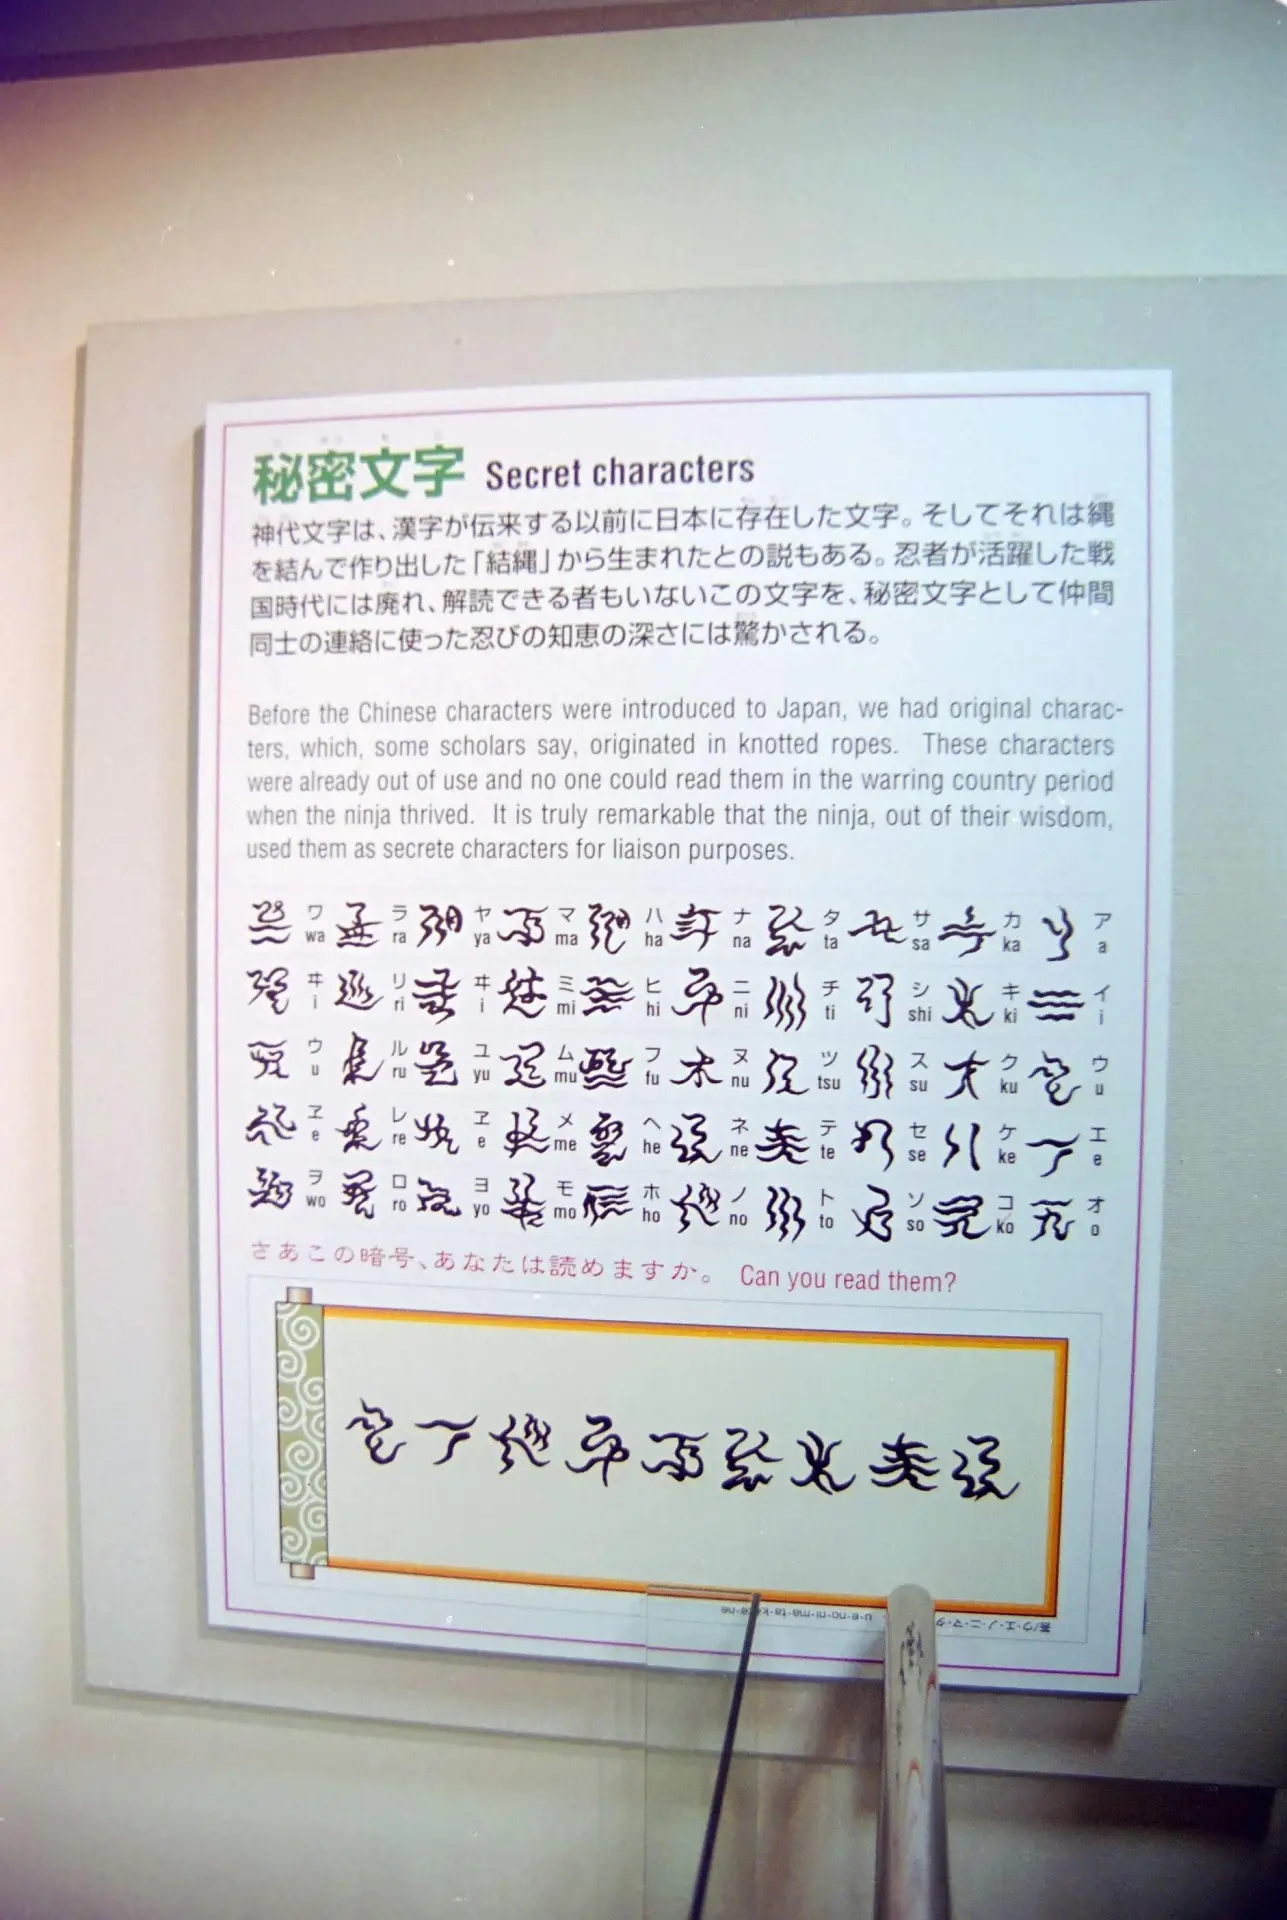 秘密文字 Secret characters
神代文字は、漢字が伝来する以前に日本に存在した文字。そしてそれは縄
を結んで作り出した「結縄」から生まれたとの説もある。忍者が活躍した戦
国時代には廃れ、解読できる者もいないこの文字を、秘密文字として仲間
同士の連絡に使った忍びの知恵の深さには驚かされる。
Before the Chinese characters were introduced to Japan, we had original charac-
ters, which, some scholars say, originated in knotted ropes. These characters
were already out of use and no one could read them in the warring country period
when the ninja thrived. It is truly remarkable that the ninja, out of their wisdom,
used them as secrete characters for liaison purposes.
ワ ラ ヤ マ ハ ナ タ サ カ ア
wa ra ya ma ha na ta sa ka a
ヰ リ ヰ ミ ヒ ニ チ シ キ イ
i ri i mi hi ni ti shi ki i
ウ ル ユ ム フ ヌ ツ ス ク ウ
u ru yu mu fu nu tsu su ku u
ヱ レ ヱ メ ヘ ネ テ セ ケ エ
e re e me he ne te se ke e
ヲ ロ ヨ モ ホ ノ ト ソ コ オ
wo ro yo mo ho no to so ko o
さあこの暗号、あなたは読めますか。 Can you read them?
答/ウ・エ・ノ・ニ・マ・タ
u-e-no-ni-ma-ta-k